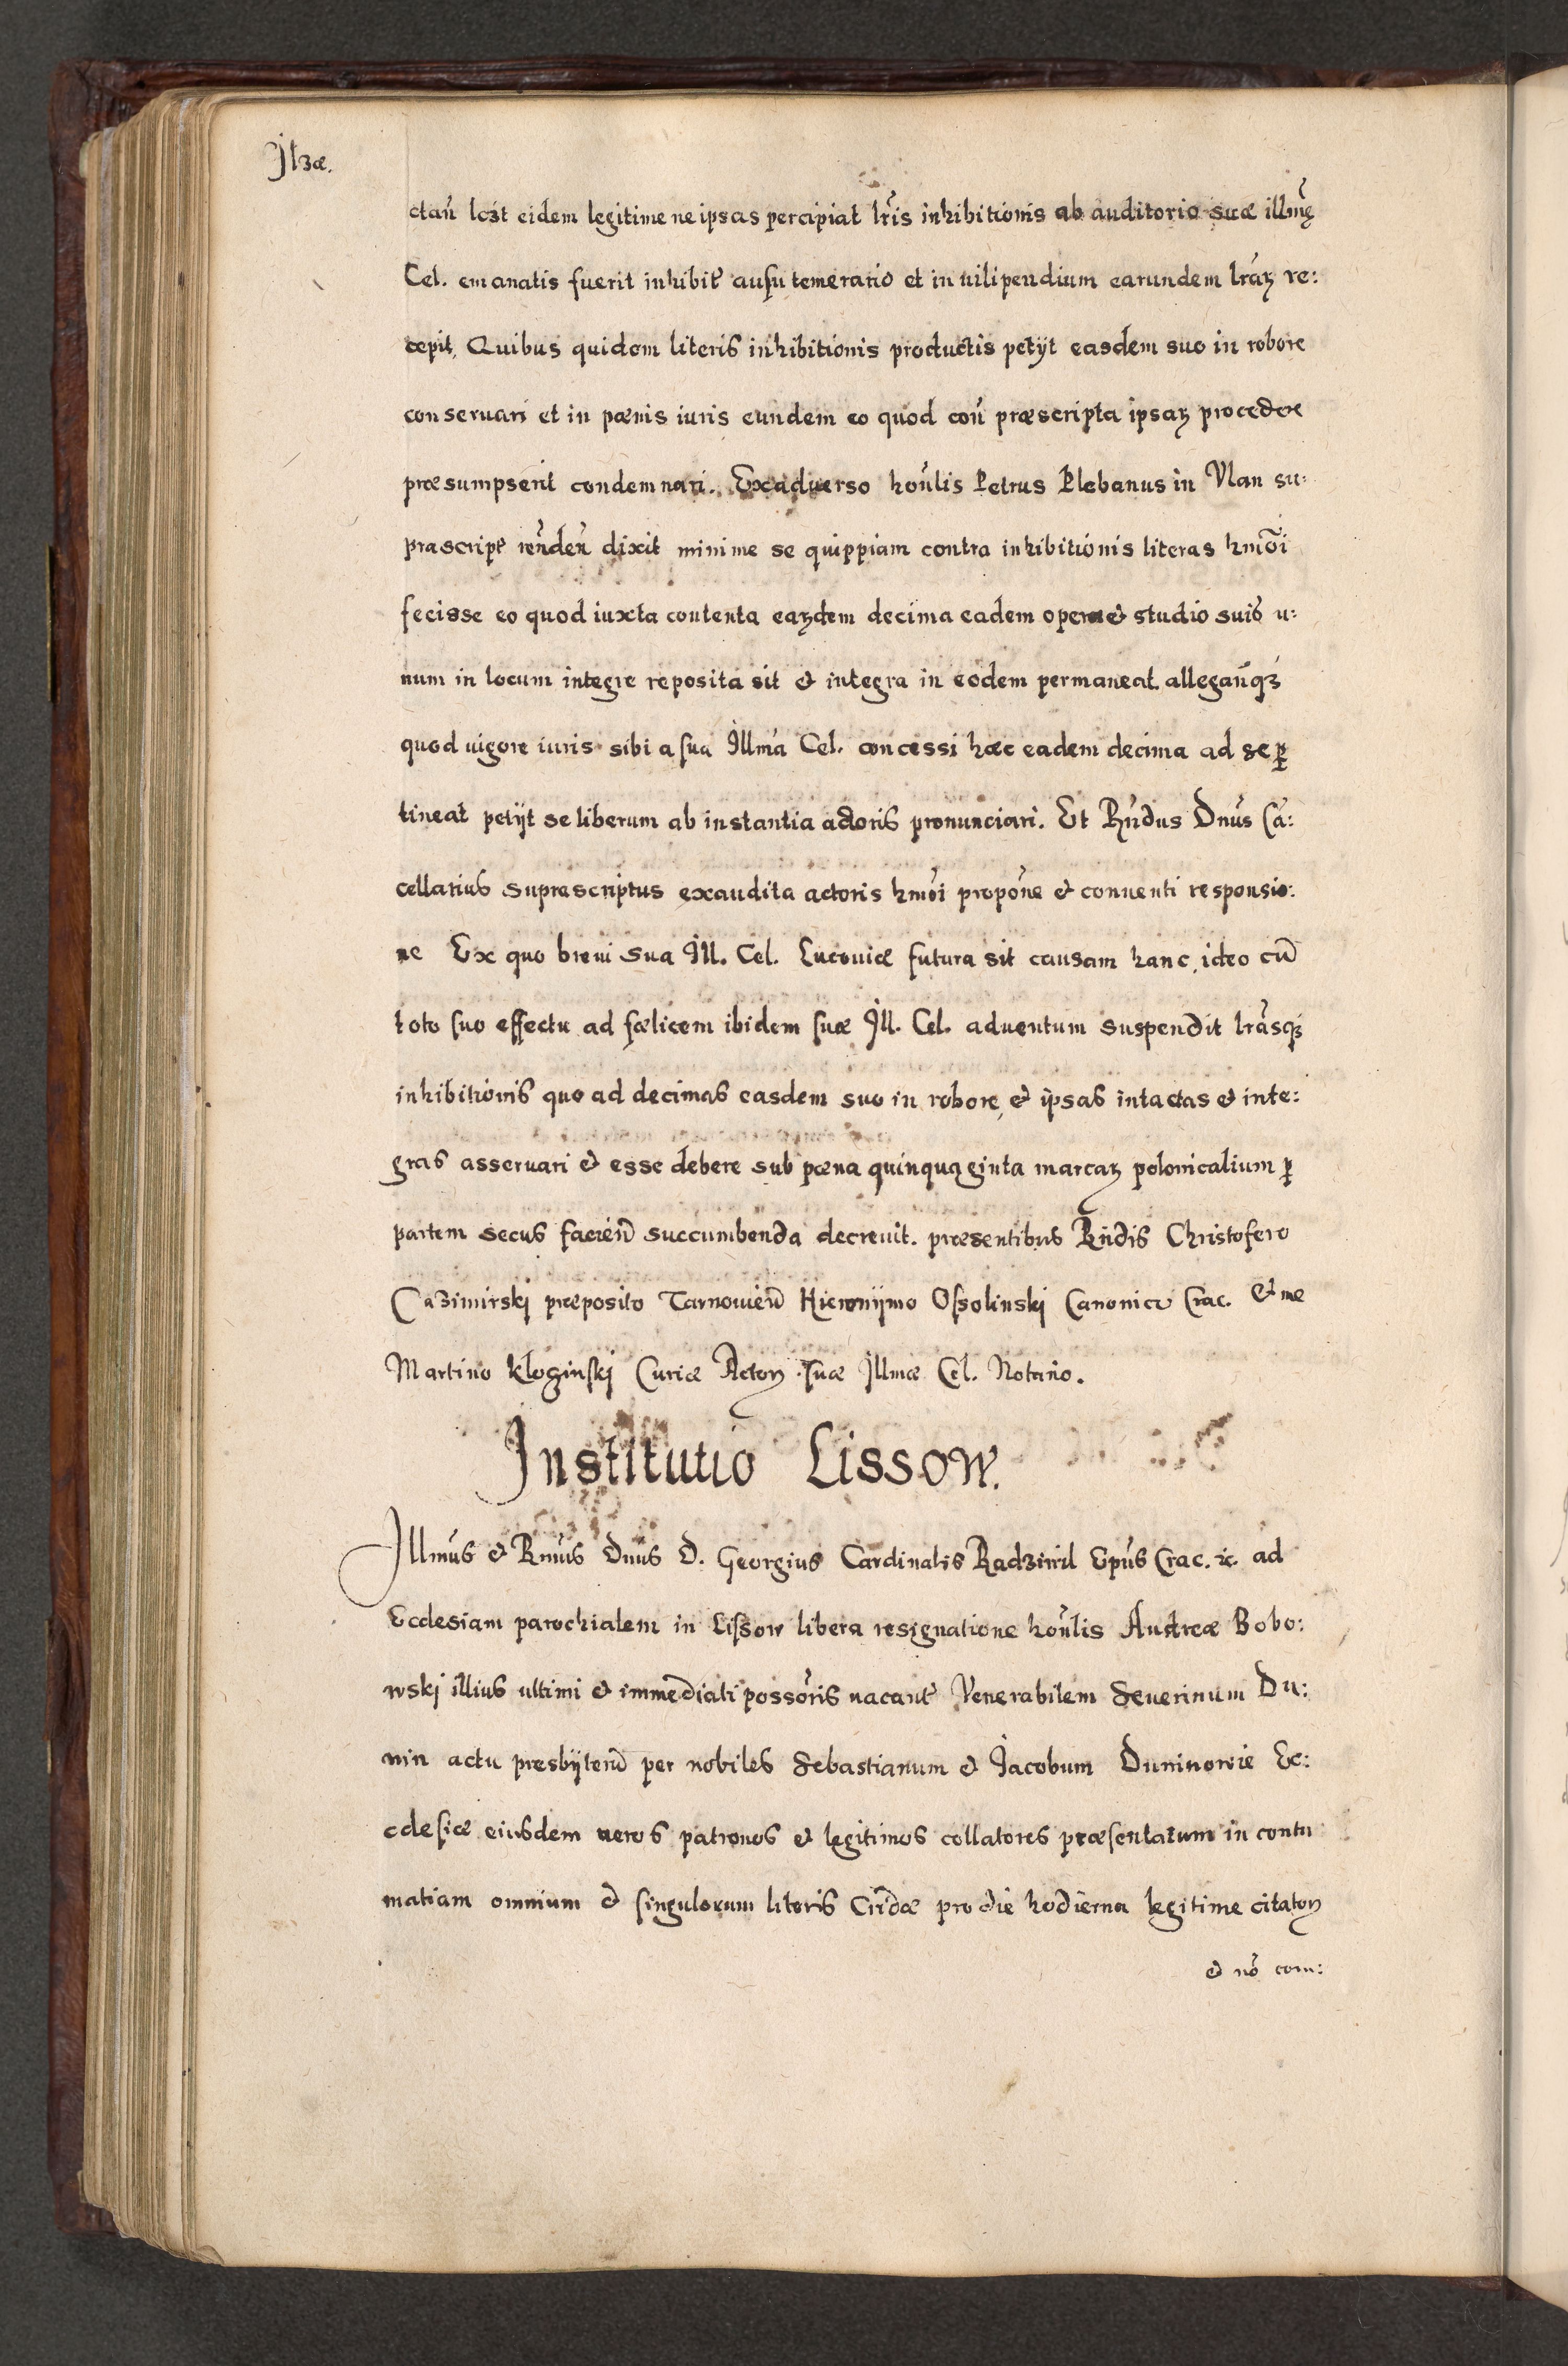 Ilzæ.
ctan̄ lczt eidem legitime ne ipsas percipiat lr̃is inhibitionis ab auditorio suæ illmę
Cel. emanatis fuerit inhibit' ausu temerario et in uilipendium earundem lrãꝝ re:
cepit, Quibus quidem literis inhibitionis productis petijt easdem suo in robore
conseruari et in pœnis iuris eundem eo quod coñ præscripta ipsaꝝ procedere
præsumpserit condemnari. Ex aduerso honlis Petrus Plebanus in Vlan su:
prascript' rñden̄ dixit minime se quippiam contra inhibitionis literas hmõi
fecisse eo quod iuxta contenta eaꝝdem decima eadem opera et studio suis u:
num in locum integre reposita sit et integra in eodem permaneat allegan̄qꝫ
quod uigore iuris sibi a sua Illma Cel. concessi hæc eadem decima ad se ꝑ
tineat petijt se liberum ab instantia actoris pronunciari. Et Rndus Dnus Cã:
cellarius suprascriptus exaudita actoris hmõi propõne et conuenti responsio:
ne Ex quo breui sua Ill. Cel. Lucouiæ futura sit causam hanc, ideo cũ
toto suo effectu ad fœlicem ibidem suæ Ill. Cel. aduentum suspendit lrãsqꝫ
inhibitionis quo ad decimas easdem suo in robore, et ipsas intactas et inte:
gras asseruari et esse debere sub pœna quinquaginta marcaꝝ polonicalium ꝑ
partem secus facien̄ succumbenda decreuit. præsentibus Rndis Christofero
Cazimirskj præposito Tarnouien̄ Hieronijmo Ossolinskj Canonico Crac. et me
Martino Kłoginskj Curiæ Actoꝝ suæ Illmæ Cel. Notario.
Institutio Lissow.
Illmus et Rmus Dnus D. Georgius Cardinalis Radziwil Epus Crac. ꝛc. ad
Ecclesiam parochialem in Lissow libera resignatione honlis Andreæ Bobo:
wskj illius ultimi et immediati possõris uacant' Venerabilem Seuerinum Du:
nin actu presbijterũ per nobiles Sebastianum et Jacobum Duninowie Ec:
clesiæ eiusdem ueros patronos et legitimos collatores præsentatum in contu
matiam omnium et singulorum literis Cridæ pro die hodierna legitime citatoꝝ
et nõ com: